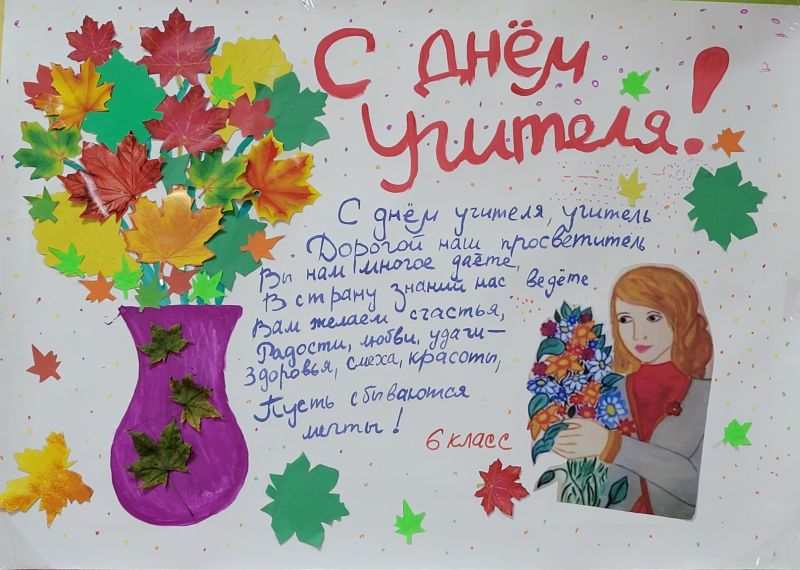 С днём
учителя!
С днём учителя, учитель
Дорогой наш просветитель
Вы нам многое даёте,
В страну знаний нас ведёте
Вам желаем счастья,
Радости, любви, удачи–
Здоровья, смеха, красоты,
Пусть сбываются
мечты!
6 класс